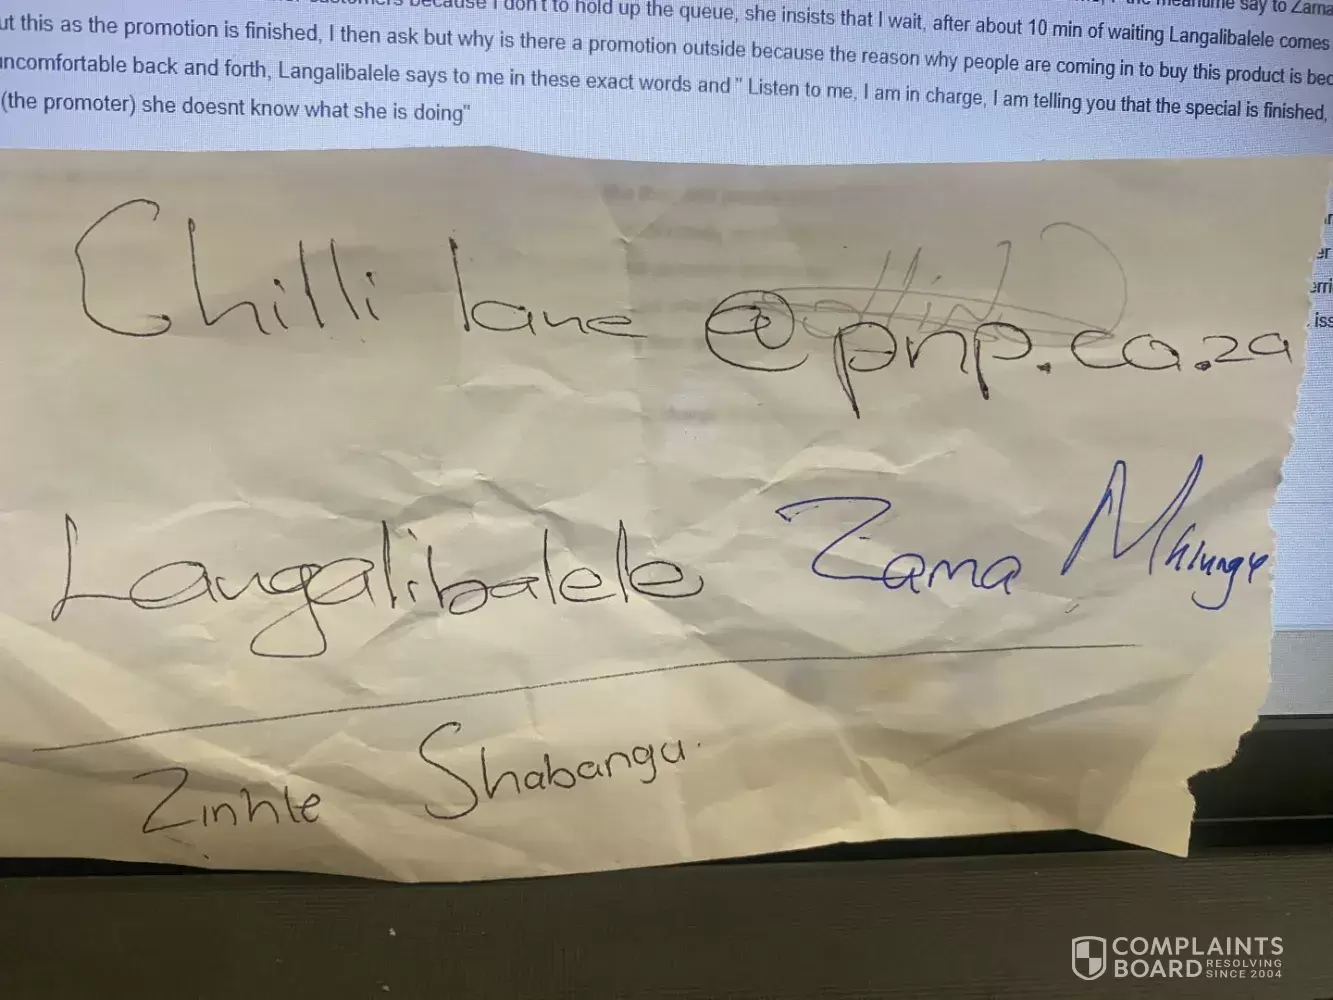 because I don't to hold up the queue, she insists that I wait, after about 10 min of waiting Langalibalele comes
ut this as the promotion is finished, I then ask but why is there a promotion outside because the reason why people are coming in to buy this product is bec
uncomfortable back and forth, Langalibalele says to me in these exact words and " Listen to me, I am in charge, I am telling you that the special is finished,
(the promoter) she doesnt know what she is doing"
Chilli lane @pnp.co.za
Langalibalele Zama Mhlungu
Zinhle Shabangu
COMPLAINTS
BOARD RESOLVING
SINCE 2004